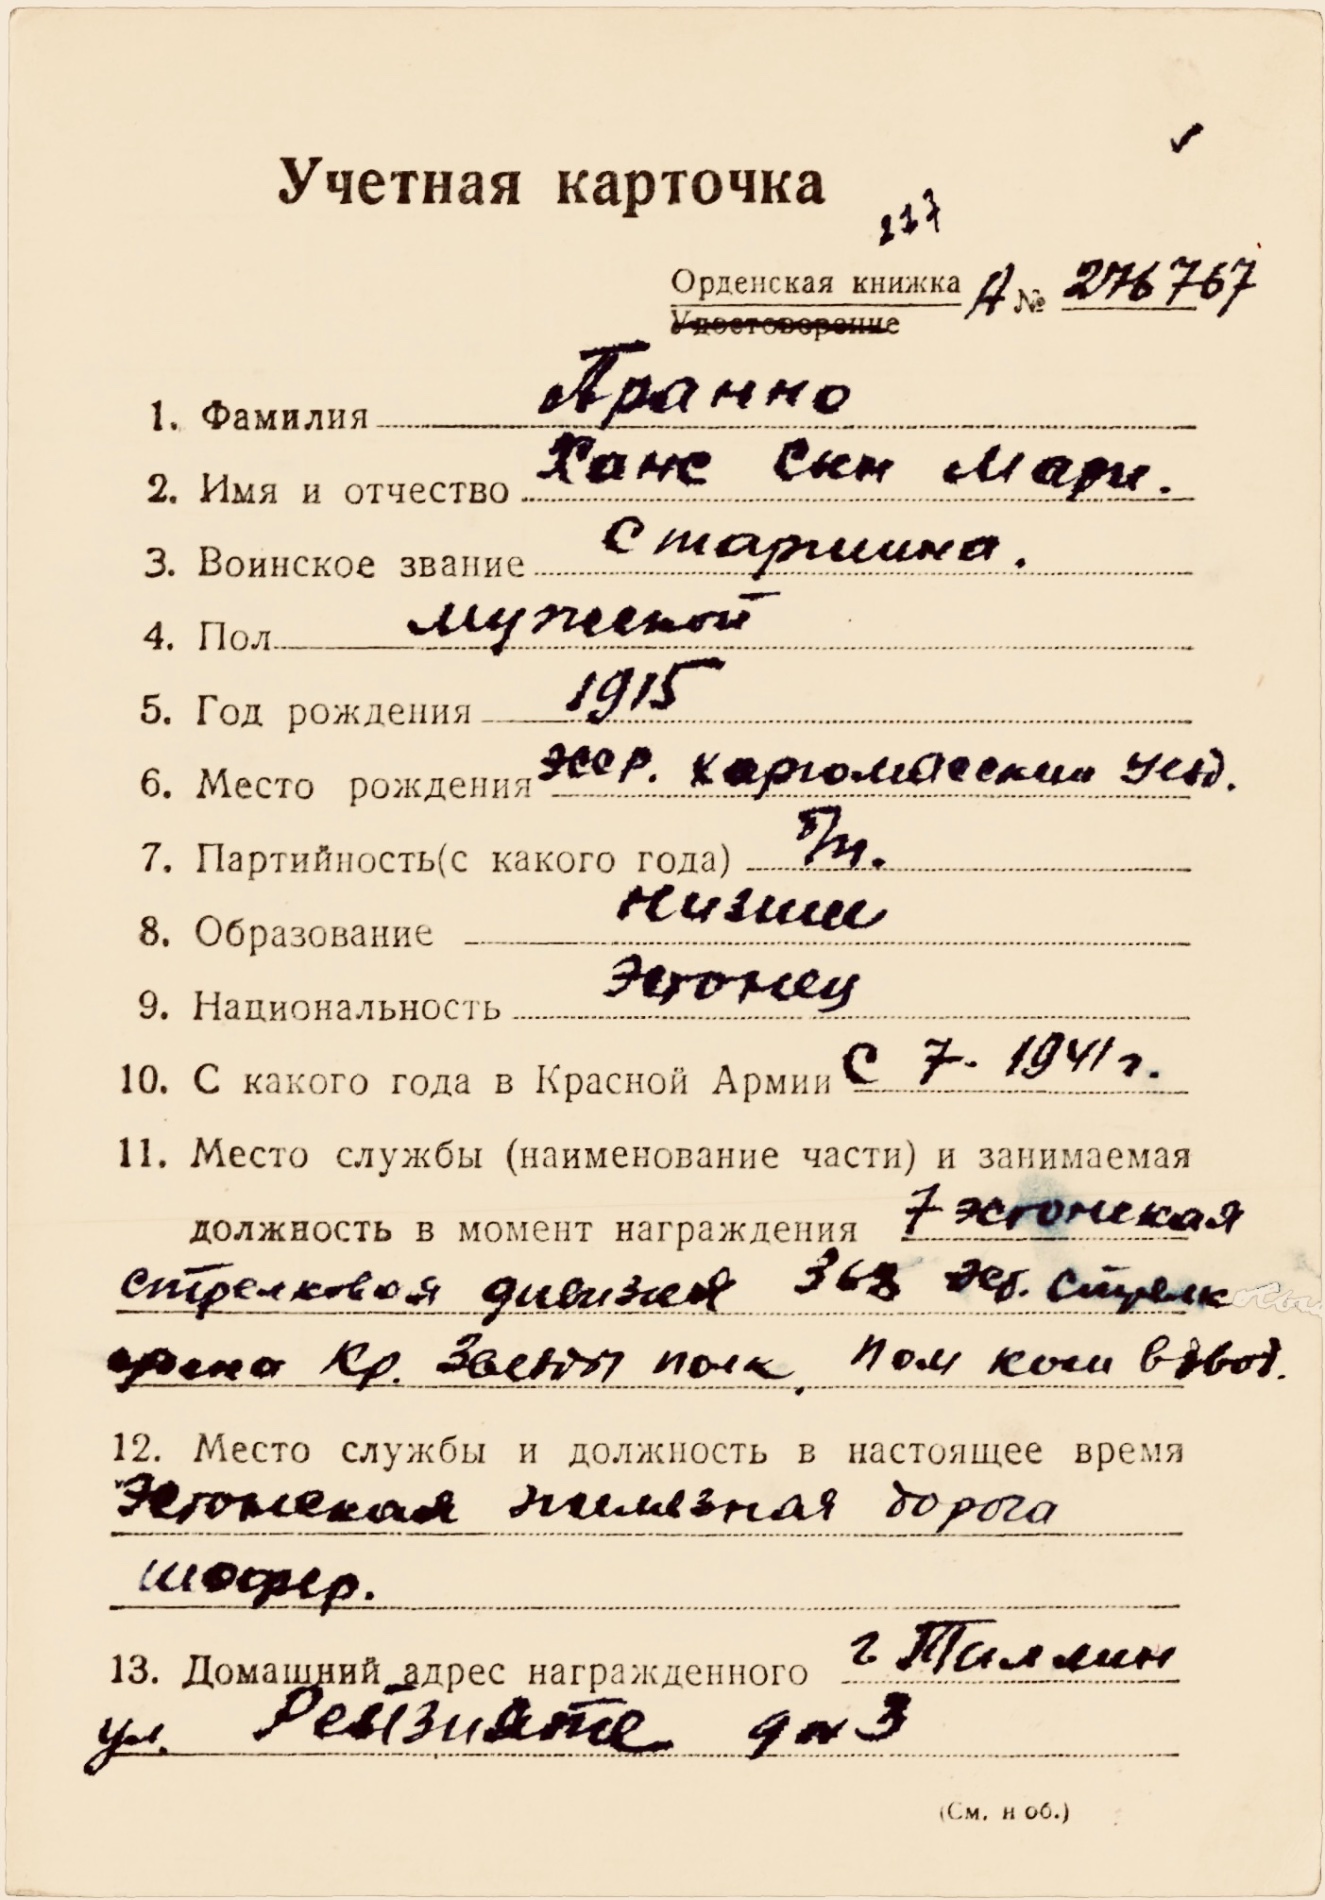 Учетная карточка
Орденская книжка А № 276767
Удостоверение
1. Фамилия Пранно
2. Имя и отчество Ханс Сын Мари.
3. Воинское звание Старшина.
4. Пол мужской
5. Год рождения 1915
6. Место рождения ЭССР. уезд.
7. Партийность (с какого года) б/п.
8. Образование низшии
9. Национальность Эстонец
10. С какого года в Красной Армии С 7. 1941 г.
11. Место службы (наименование части) и занимаемая
должность в момент награждения 7 эстонская
стрелковая дивизия эст. стрелк
Кр. Звезды полк, пом ком взвод.
12. Место службы и должность в настоящее время
Эстонская железная дорога
шофер.
13. Домашний адрес награжденного г Таллин
ул. 3
(См. н об.)